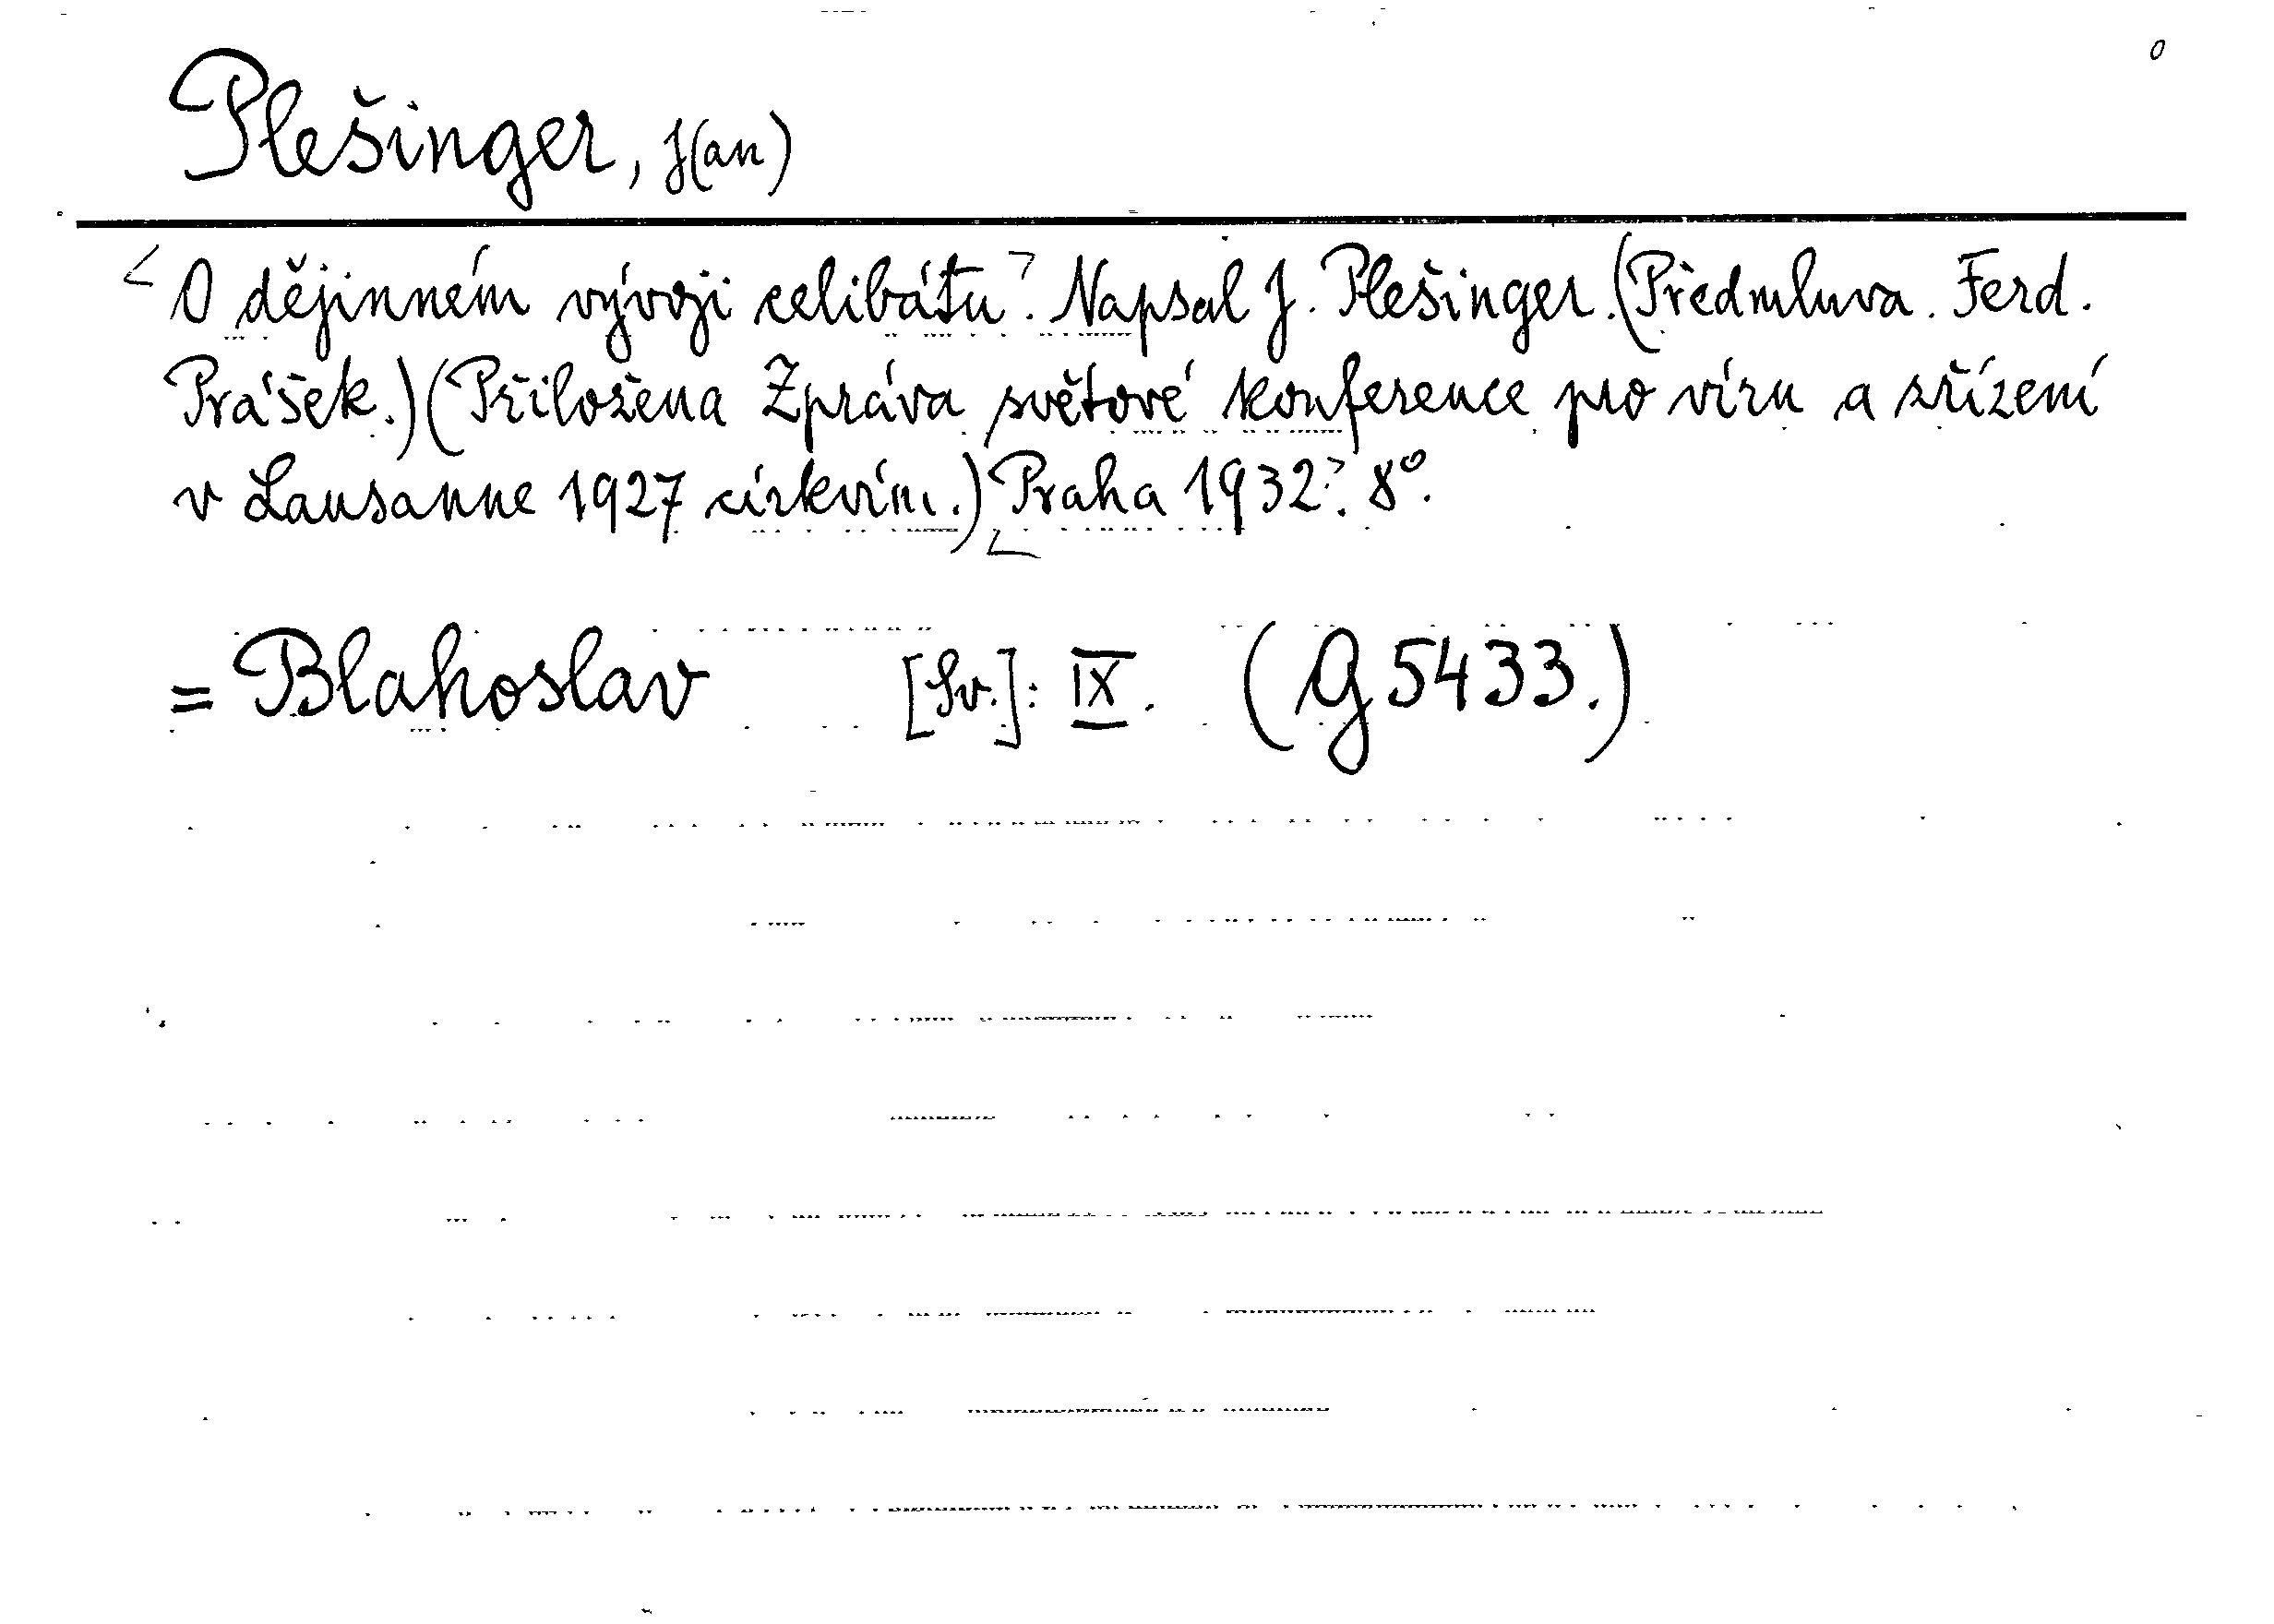 0
Plešinger, J(an)
<O dějinném vývoji celibátu>. Napsal J. Plešinger. (Předmluva. Ferd.
Prášek.) (Přiložena Zpráva světové konference pro víru a zřízení
v Lausanne 1927 církvím.) <Praha 1932>. 8°.
= Blahoslav [Sv.]: IX. (G 5433.)